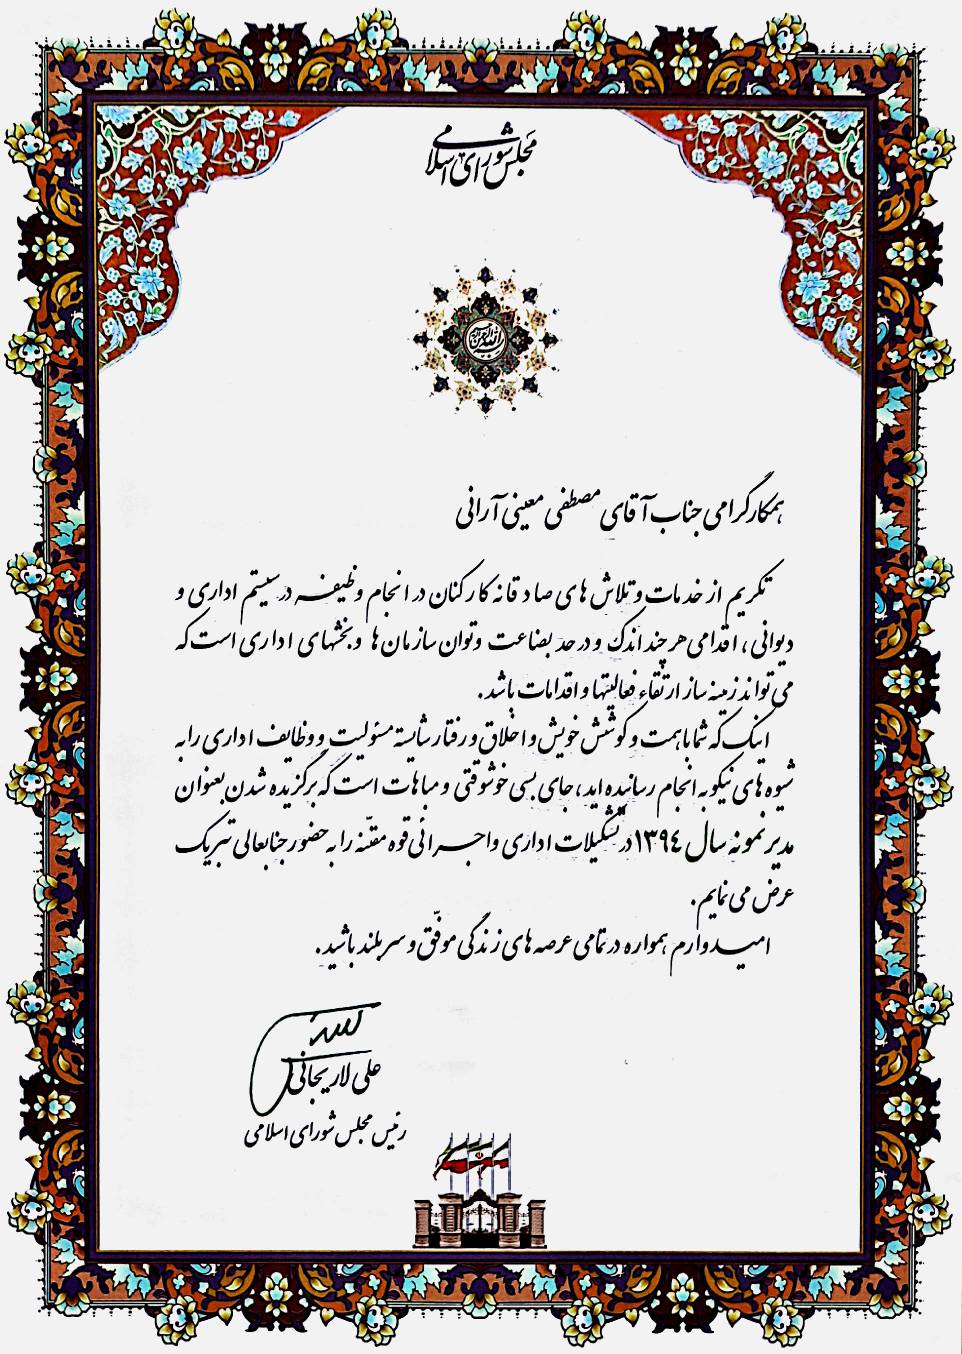 مجلس شورای اسلامی
بسم الله الرحمن الرحیم
همکار گرامی جناب آقای مصطفی معینی آرانی
تکریم از خدمات و تلاش های صادقانه کارکنان در انجام وظیفه در سیستم اداری و
دیوانی، اقدامی هر چند اندک و در حد بضاعت و توان سازمان ها و بخشهای اداری است که
می تواند زمینه ساز ارتقاء فعالیتها و اقدامات باشد.
اینک که شما با همت و کوشش خویش و اخلاق و رفتار شایسته مسئولیت و وظایف اداری را به
شیوه های نیکو به انجام رسانیده اید، جای بسی خوشوقتی و مباهات است که برگزیده شدن بعنوان
مدیر نمونه سال ۱۳۹۴ در تشکیلات اداری و اجرائی قوه مقنّنه را به حضور جنابعالی تبریک
عرض می نمایم.
امیدوارم همواره در تمامی عرصه های زندگی موفّق و سربلند باشید.
علی لاریجانی
رئیس مجلس شورای اسلامی